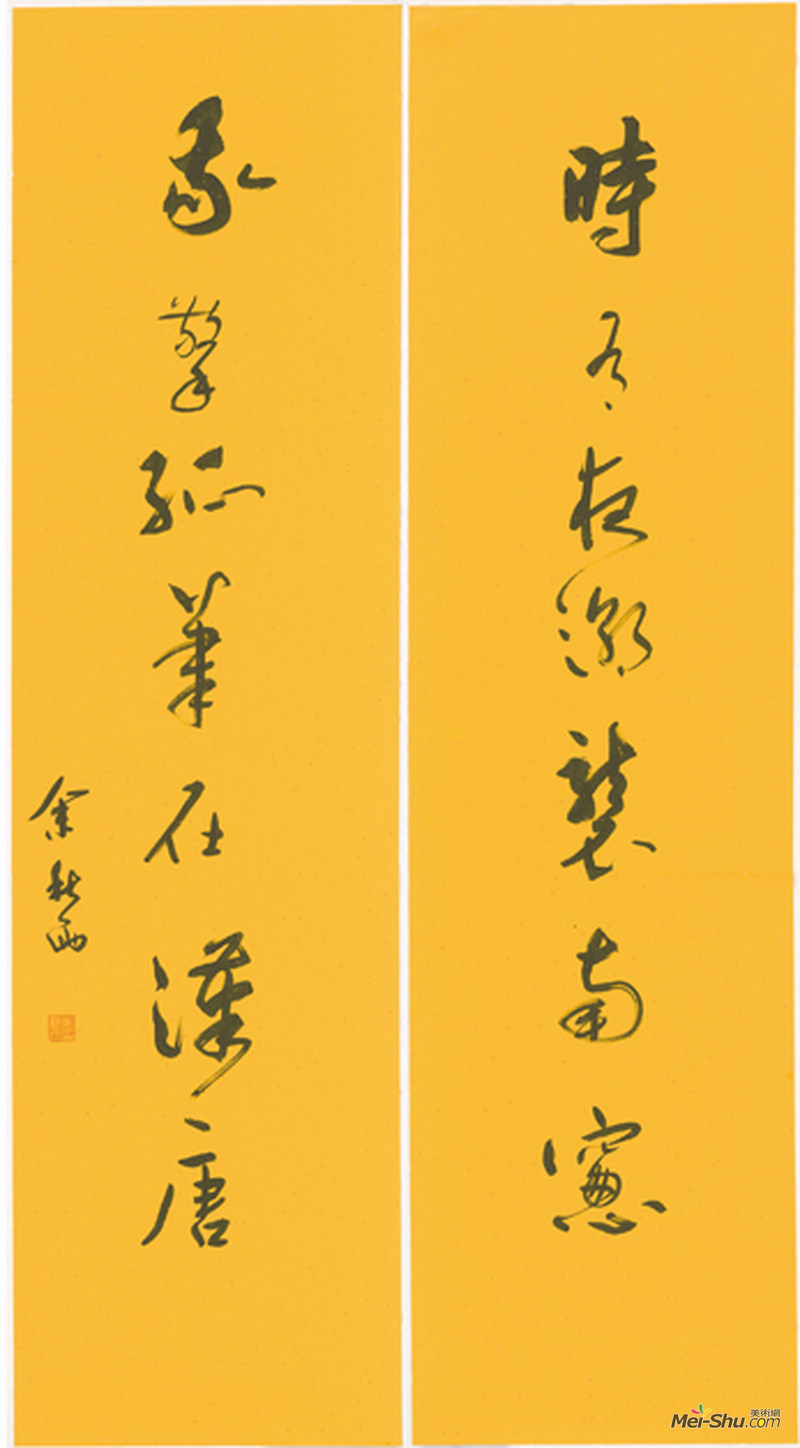 時有夜潮襲南窗
我擎孤筆在漢唐
余秋雨
美術網
Mei-Shu.com